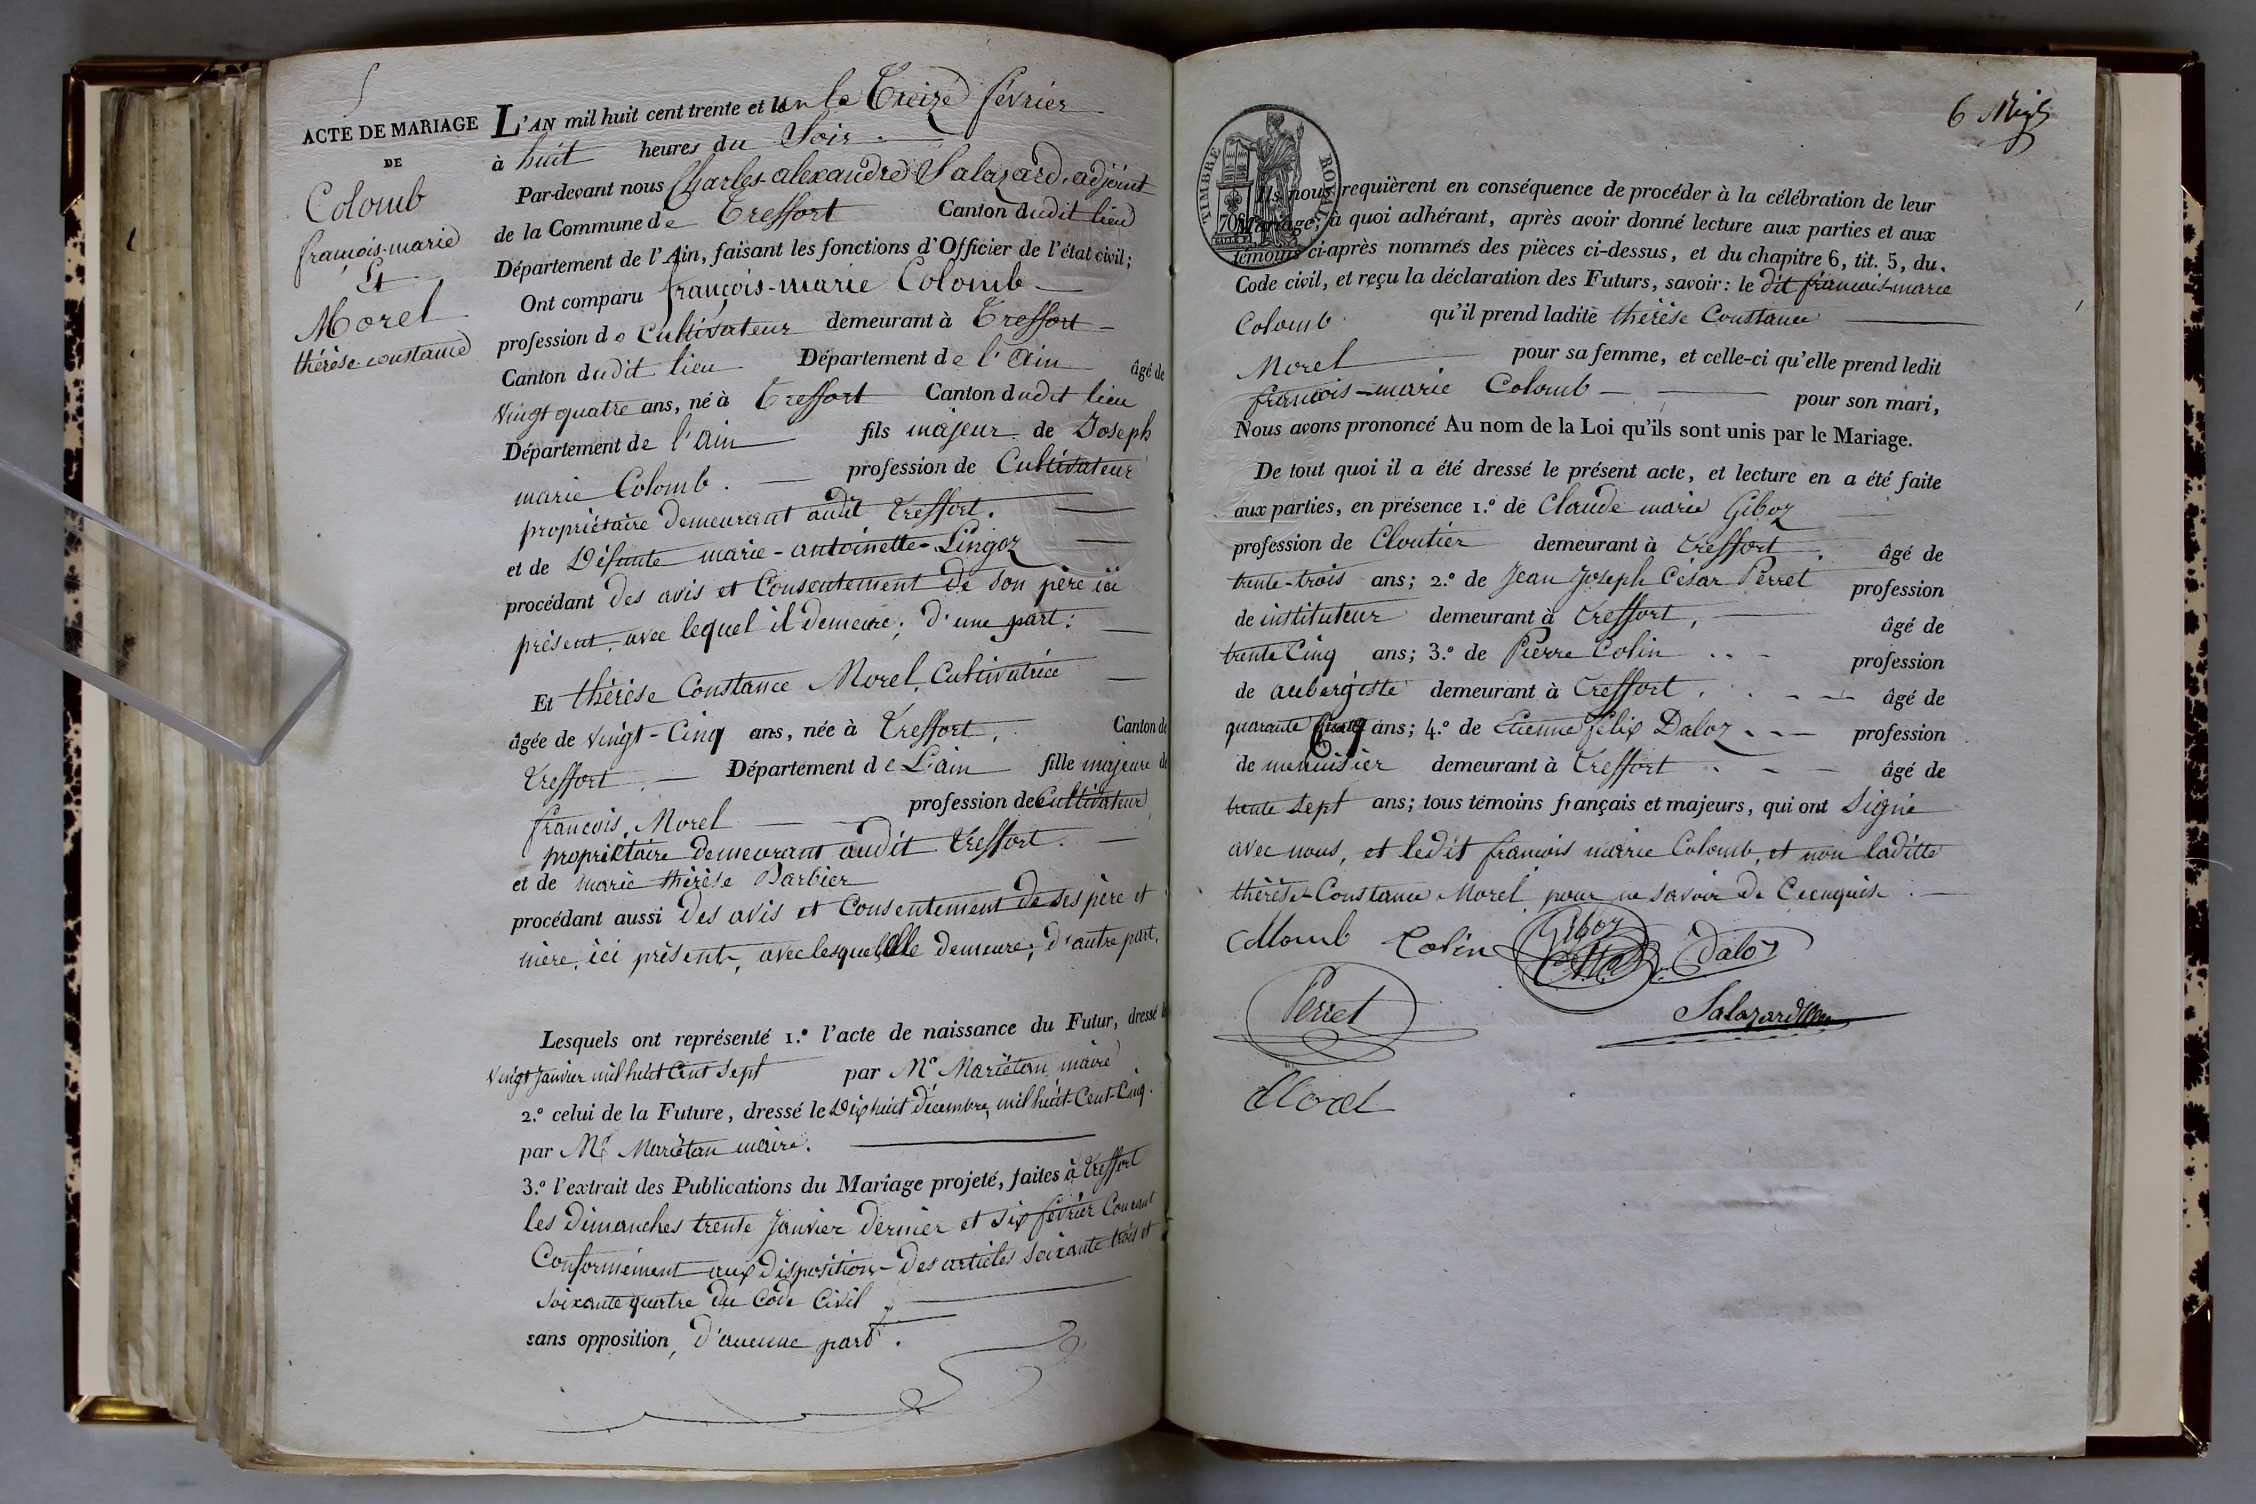 5
ACTE DE MARIAGE
DE
Colomb
françois-marie
Et
Morel
thérèse constance
L'AN mil huit cent trente et un le Treize février
à huit heures du Soir.
Par-devant nous Charles alexandre Salazard, adjoint
de la Commune de Treffort Canton dudit lieu
Département de l'Ain, faisant les fonctions d'Officier de l'état civil;
Ont comparu françois-marie Colomb
profession de Cultivateur demeurant à Treffort
Canton dudit lieu Département de l'ain âgé de
vingt quatre ans, né à Treffort Canton dudit lieu
Département de l'ain fils majeur de Joseph
marie Colomb. profession de Cultivateur
propriétaire demeurant audit Treffort.
et de Défunte marie-antoinette-Lingoz
procédant des avis et Consentement de son père ici
présent, avec lequel il demeure; d'une part:
Et thérèse Constance Morel, Cultivatrice
âgée de vingt-Cinq ans, née à Treffort, Canton de
Treffort, Département de L'ain fille majeure de
françois Morel profession de Cultivateur
propriétaire demeurant audit Treffort.
et de marie thérèse Barbier
procédant aussi des avis et Consentement de ses père et
mère, ici présents, avec lesquels elle demeure; d'autre part.
Lesquels ont représenté 1.º l'acte de naissance du Futur, dressé le
vingt janvier mil huit Cent Sept par Mr Mariétan, maire
2.º celui de la Future, dressé le Dix huit décembre mil huit-Cent-Cinq.
par Mr Mariétan maire.
3.º l'extrait des Publications du Mariage projeté, faites à Treffort
les dimanches trente janvier dernier et six février Courant
Conformément aux dispositions des articles soixante trois et
soixante quatre du Code Civil
sans opposition, d'aucune part.
6
TIMBRE ROYAL
70
Ils nous requièrent en conséquence de procéder à la célébration de leur
Mariage; à quoi adhérant, après avoir donné lecture aux parties et aux
témoins ci-après nommés des pièces ci-dessus, et du chapitre 6, tit. 5, du
Code civil, et reçu la déclaration des Futurs, savoir: le dit françois-marie
Colomb qu'il prend ladite thérèse Constance
Morel pour sa femme, et celle-ci qu'elle prend ledit
françois-marie Colomb pour son mari,
Nous avons prononcé Au nom de la Loi qu'ils sont unis par le Mariage.
De tout quoi il a été dressé le présent acte, et lecture en a été faite
aux parties, en présence 1.º de Claude marie Giboz
profession de Cloutier demeurant à Treffort. âgé de
trente-trois ans; 2.º de Jean Joseph César Perret profession
de instituteur demeurant à Treffort, âgé de
trente Cinq ans; 3.º de Pierre Colin profession
de aubergiste demeurant à Treffort. âgé de
quarante Cinq ans; 4.º de Etienne félix Daloz profession
de menuisier demeurant à Treffort âgé de
trente sept ans; tous témoins français et majeurs, qui ont Signé
avec nous, et ledit françois marie Colomb, et non laditte
thérèse-Constance Morel pour ne savoir de Ce enquise.
Colomb Colin Giboz Daloz
Perret Salazard
Morel